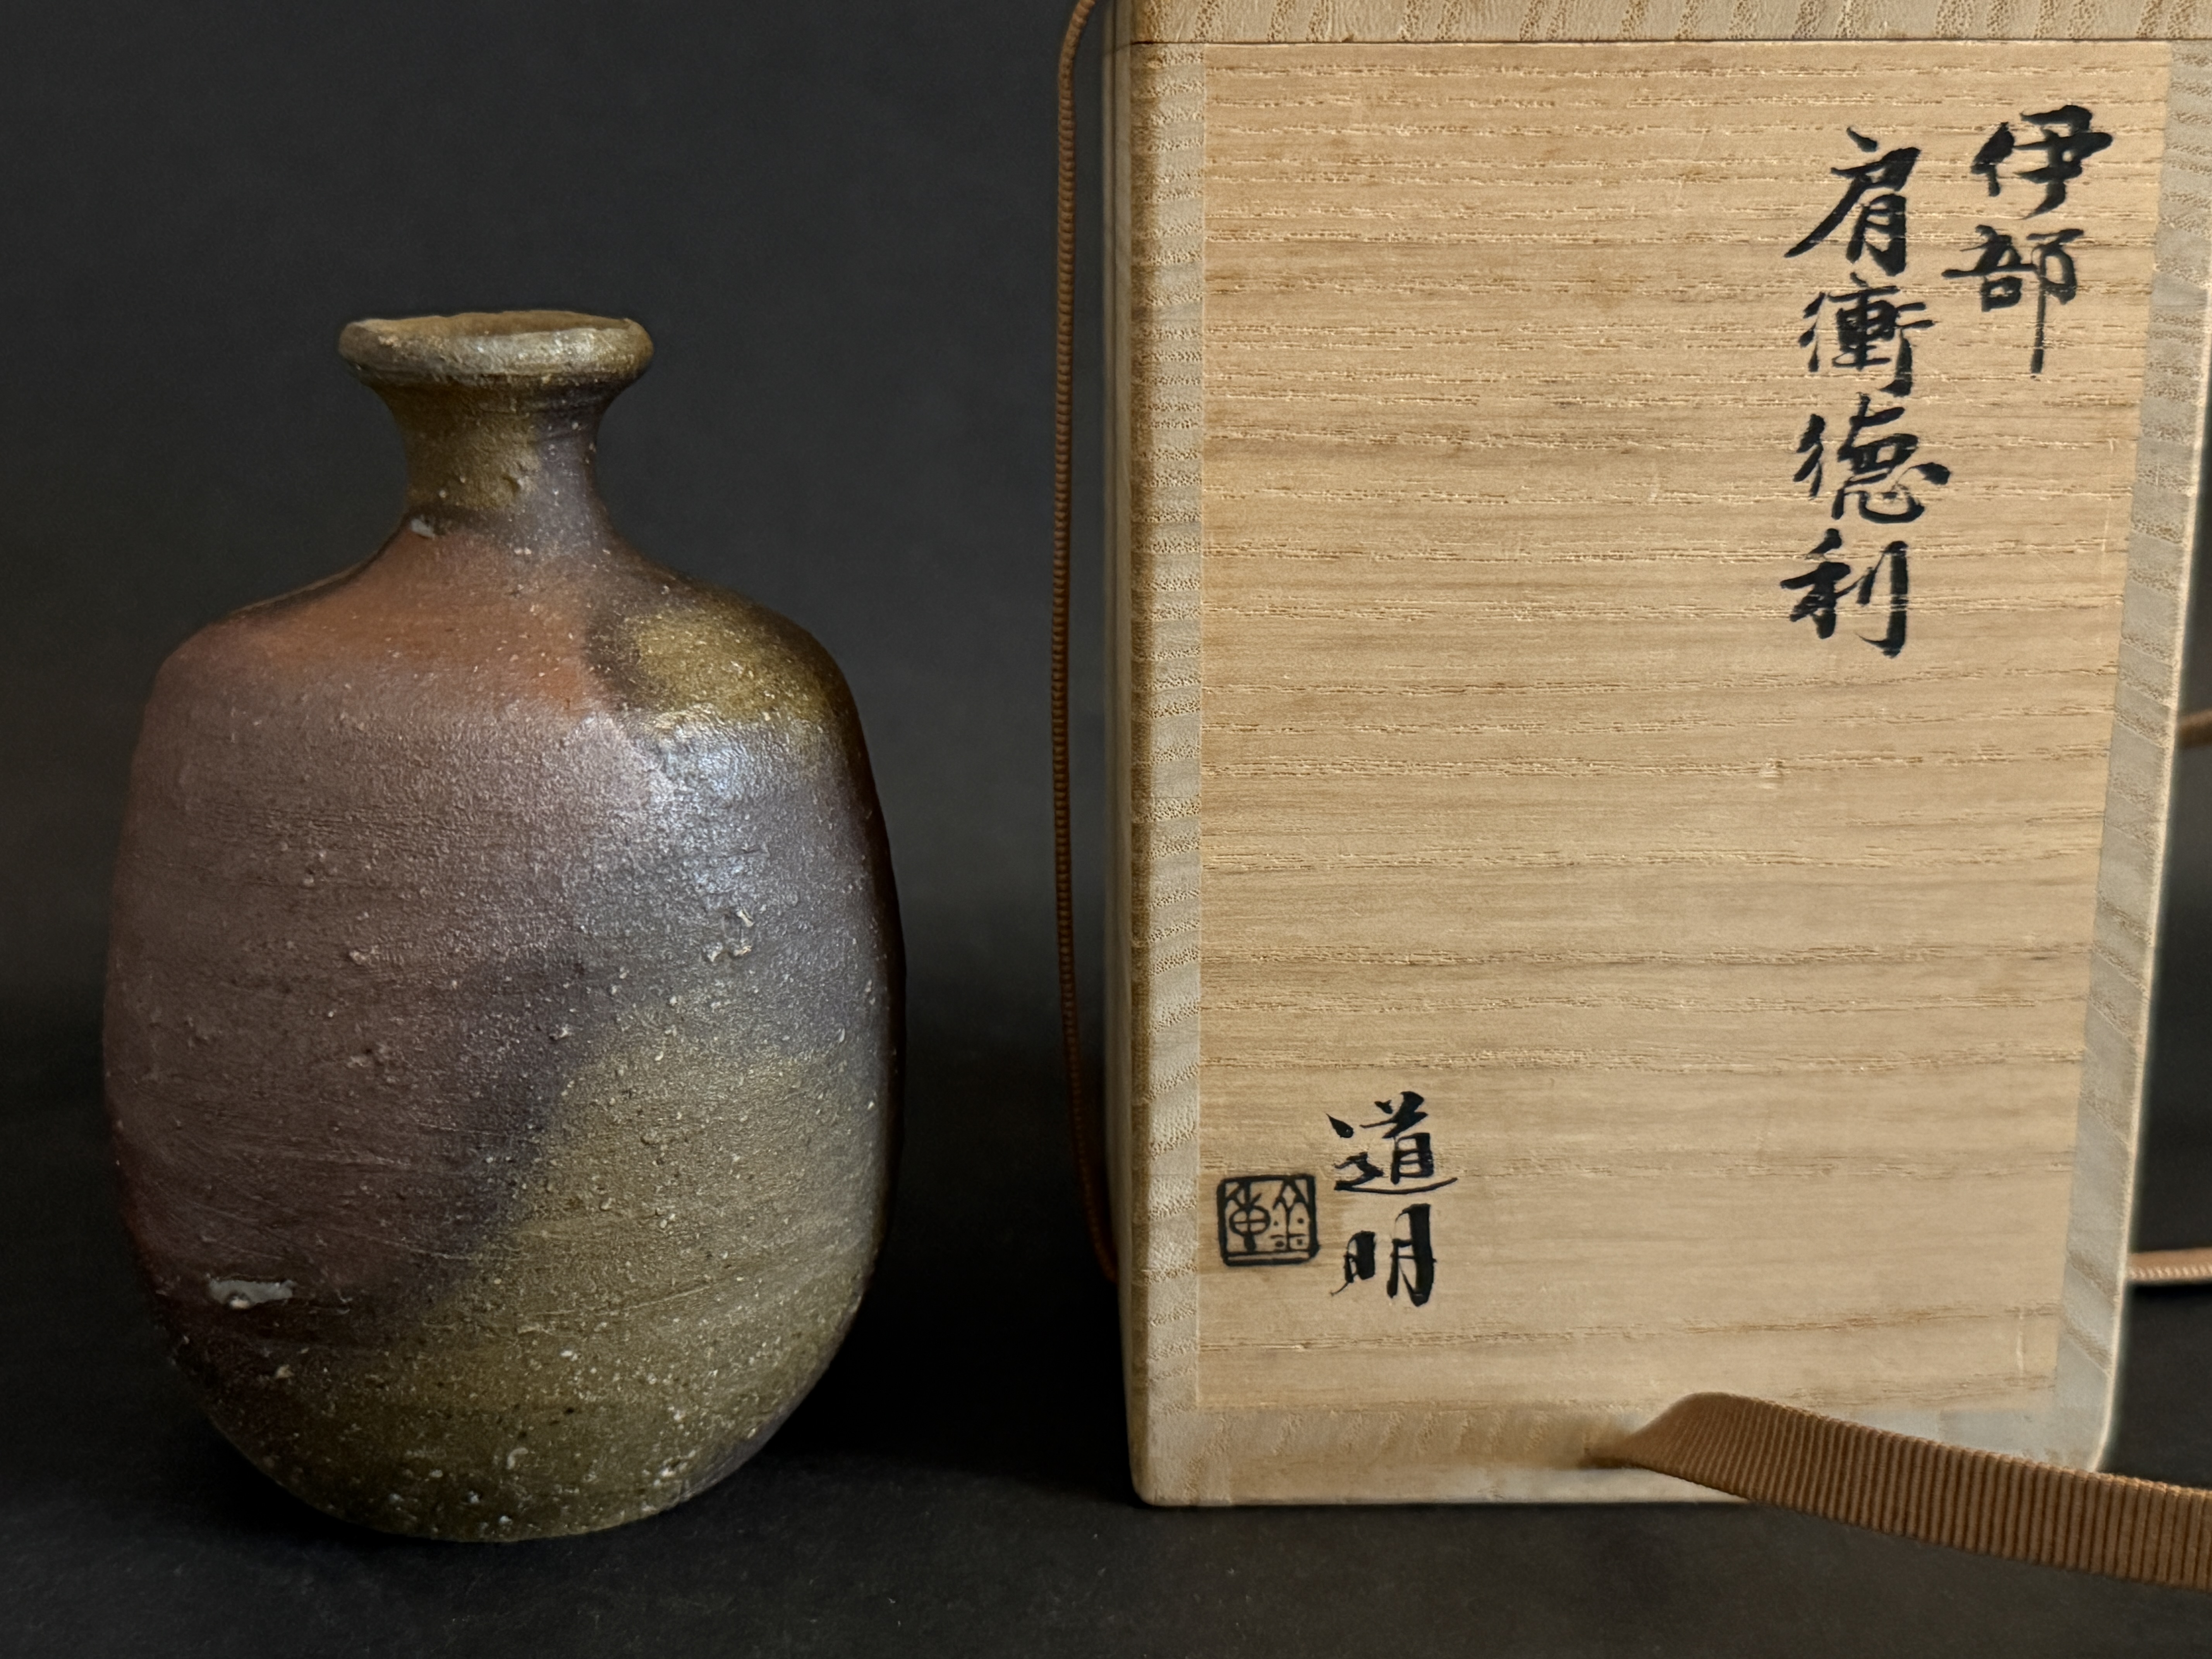 伊部
肩衝徳利
道明